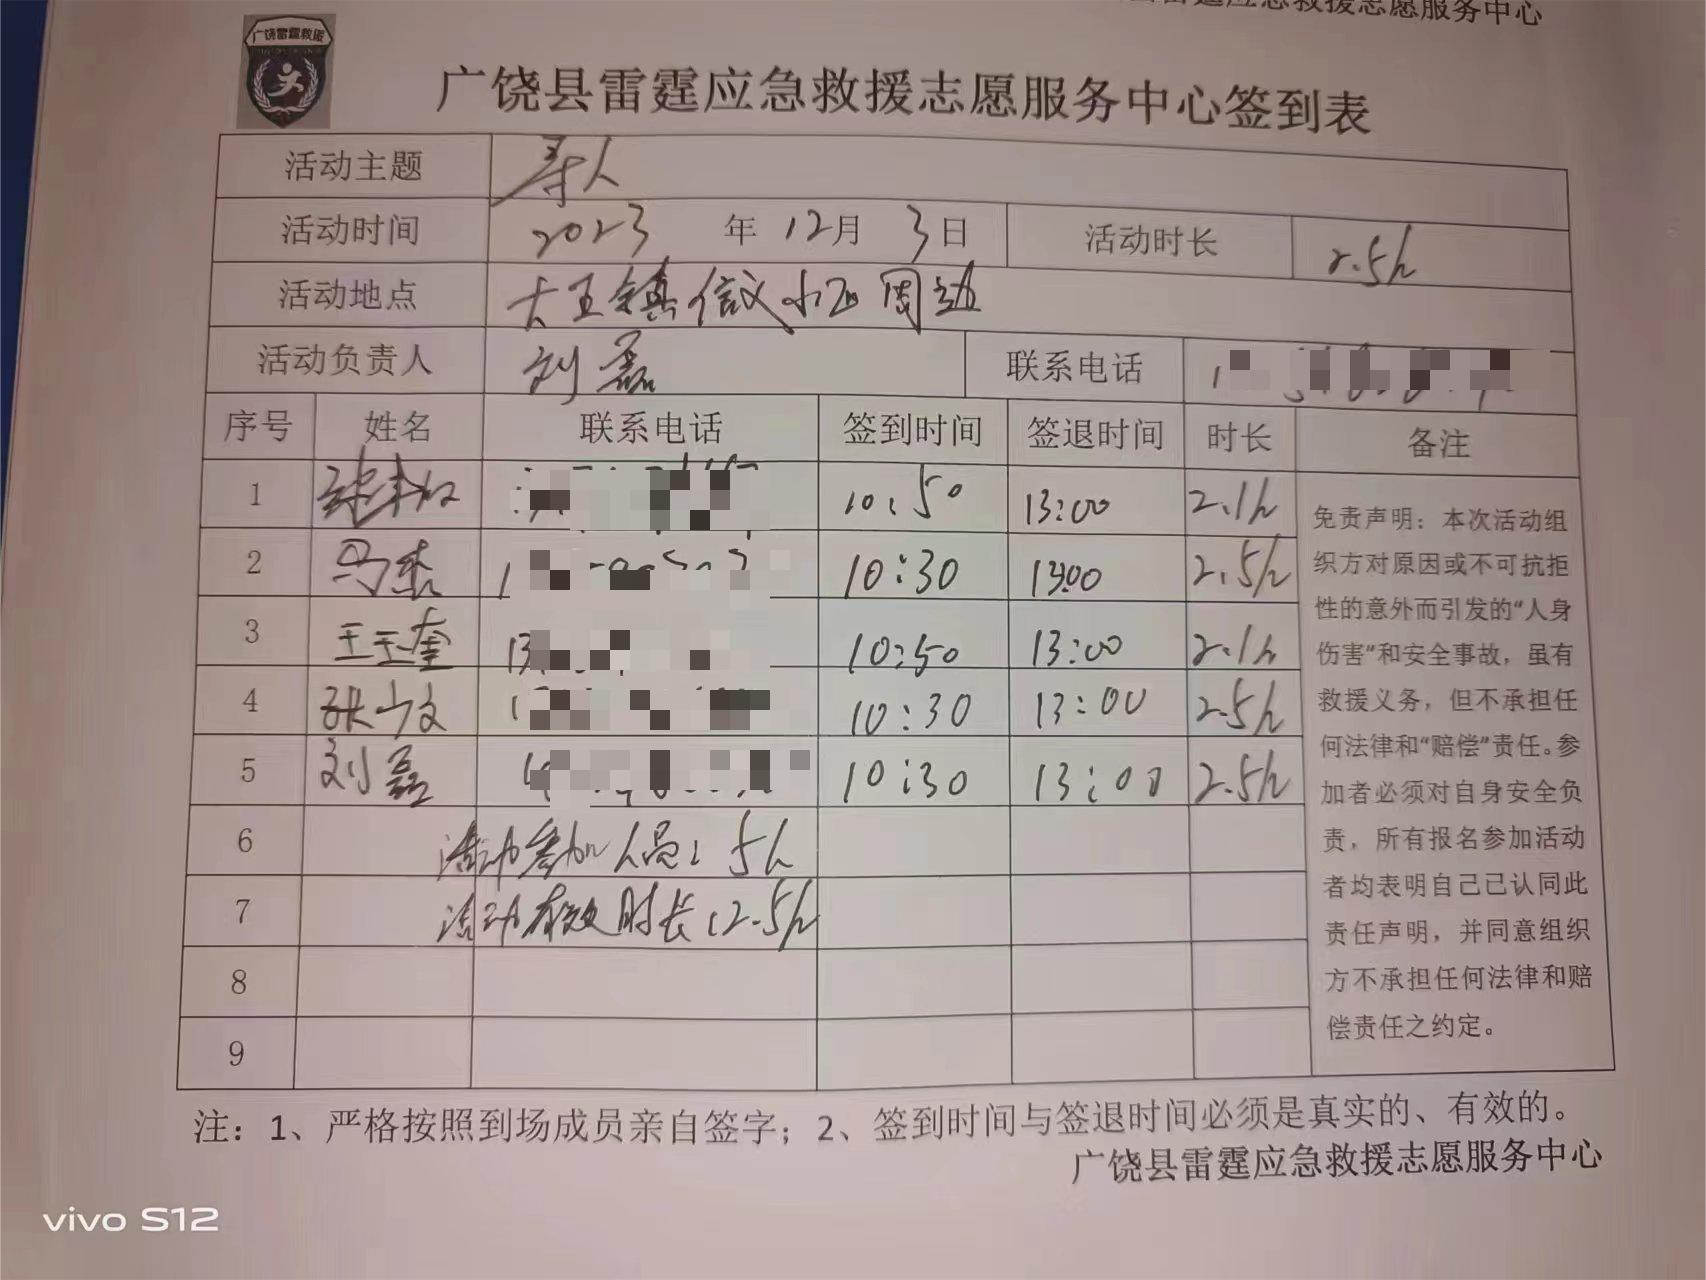 雷霆应急救援志愿服务中心
广饶雷霆救援
广饶县雷霆应急救援志愿服务中心签到表
活动主题 寻人
活动时间 2023 年 12月 3日 活动时长 2.5h
活动地点 大王镇信义小区周边
活动负责人 刘磊 联系电话
序号 姓名 联系电话 签到时间 签退时间 时长 备注
1 10:50 13:00 2.1h
2 马杰 10:30 13:00 2.5h
3 王玉奎 10:50 13:00 2.1h
4 10:30 13:00 2.5h
5 刘磊 10:30 13:00 2.5h
6 活动参加人员: 5h
7 活动有效时长:2.5h
8
9
免责声明：本次活动组
织方对原因或不可抗拒
性的意外而引发的“人身
伤害”和安全事故，虽有
救援义务，但不承担任
何法律和“赔偿”责任。参
加者必须对自身安全负
责，所有报名参加活动
者均表明自己已认同此
责任声明，并同意组织
方不承担任何法律和赔
偿责任之约定。
注：1、严格按照到场成员亲自签字；2、签到时间与签退时间必须是真实的、有效的。
广饶县雷霆应急救援志愿服务中心
vivo S12